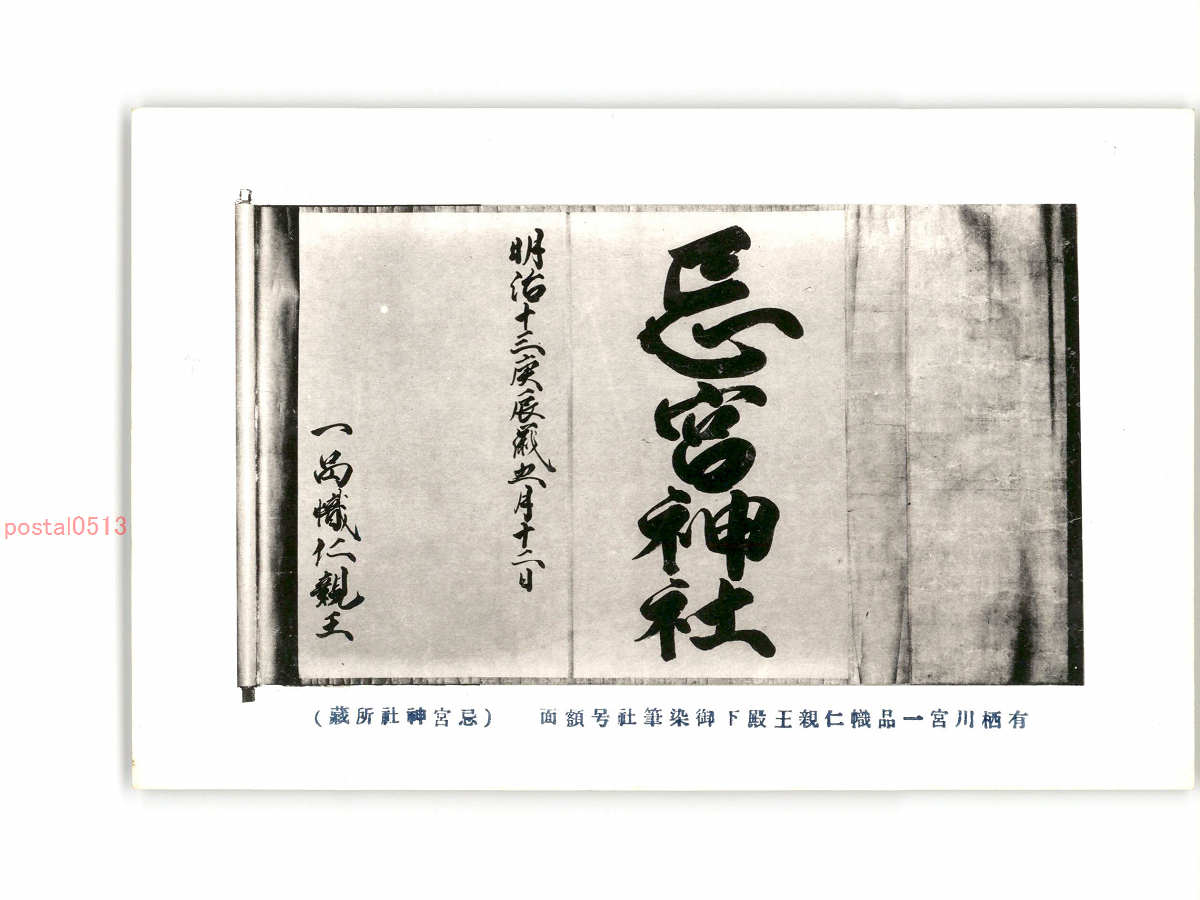 忌宮神社
明治十三庚辰歳五月十二日
一品幟仁親王
有栖川宮一品幟仁親王殿下御染筆社号額面 (忌宮神社所蔵)
postal0513